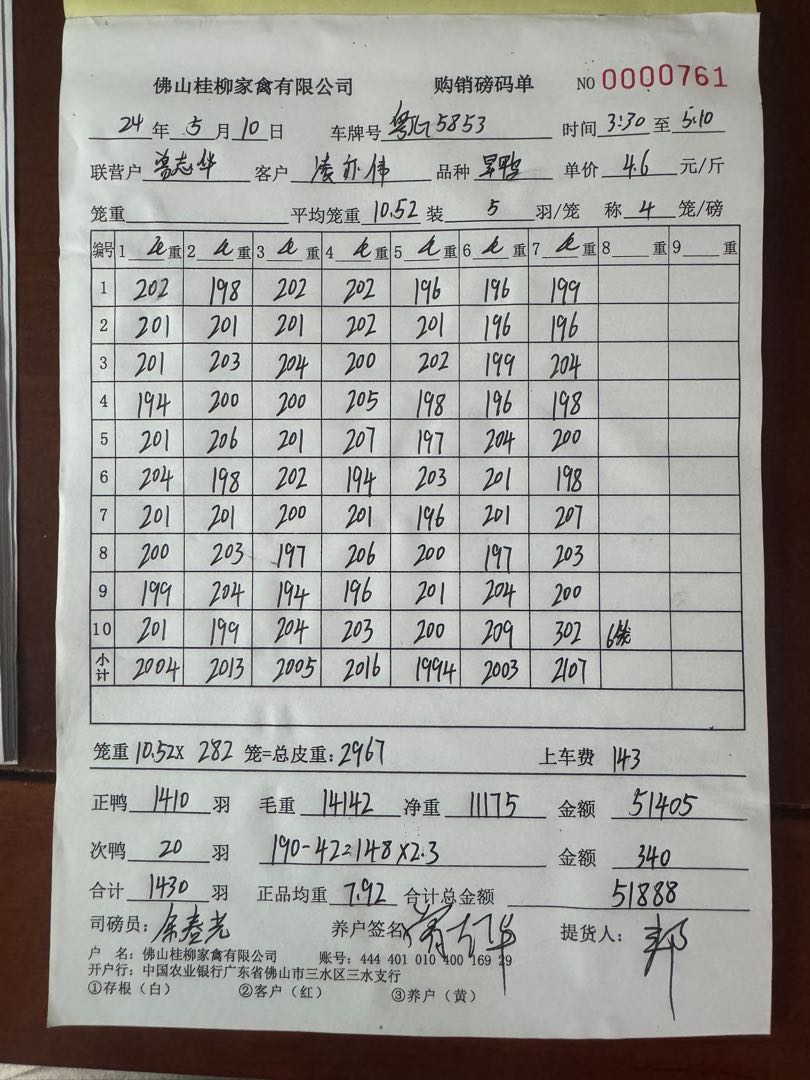 佛山桂柳家禽有限公司 购销磅码单 NO 0000761
24 年 5 月 10 日 车牌号 5853 时间 3:30 至 5:10
联营户 曾志华 客户 凌亦伟 品种 旱鸭 单价 4.6 元/斤
笼重 平均笼重 10.52 装 5 羽/笼 称 4 笼/磅
编号 1 毛 重 2 毛 重 3 毛 重 4 毛 重 5 毛 重 6 毛 重 7 毛 重 8 重 9 重
1 202 198 202 202 196 196 199
2 201 201 201 202 201 196 196
3 201 203 204 200 202 199 204
4 194 200 200 205 198 196 198
5 201 206 201 207 197 204 200
6 204 198 202 194 203 201 198
7 201 201 200 201 196 201 207
8 200 203 197 206 200 197 203
9 199 204 194 196 201 204 200
10 201 199 204 203 200 209 302 6笼
小计 2004 2013 2005 2016 1994 2003 2107
笼重 10.52X 282 笼=总皮重: 2967 上车费 143
正鸭 1410 羽 毛重 14142 净重 11175 金额 51405
次鸭 20 羽 190-42=148X2.3 金额 340
合计 1430 羽 正品均重 7.92 合计总金额 51888
司磅员: 养户签名 提货人:
户 名: 佛山桂柳家禽有限公司 账号: 444 401 010 400 169 29
开户行: 中国农业银行广东省佛山市三水区三水支行
①存根（白） ②客户（红） ③养户（黄）